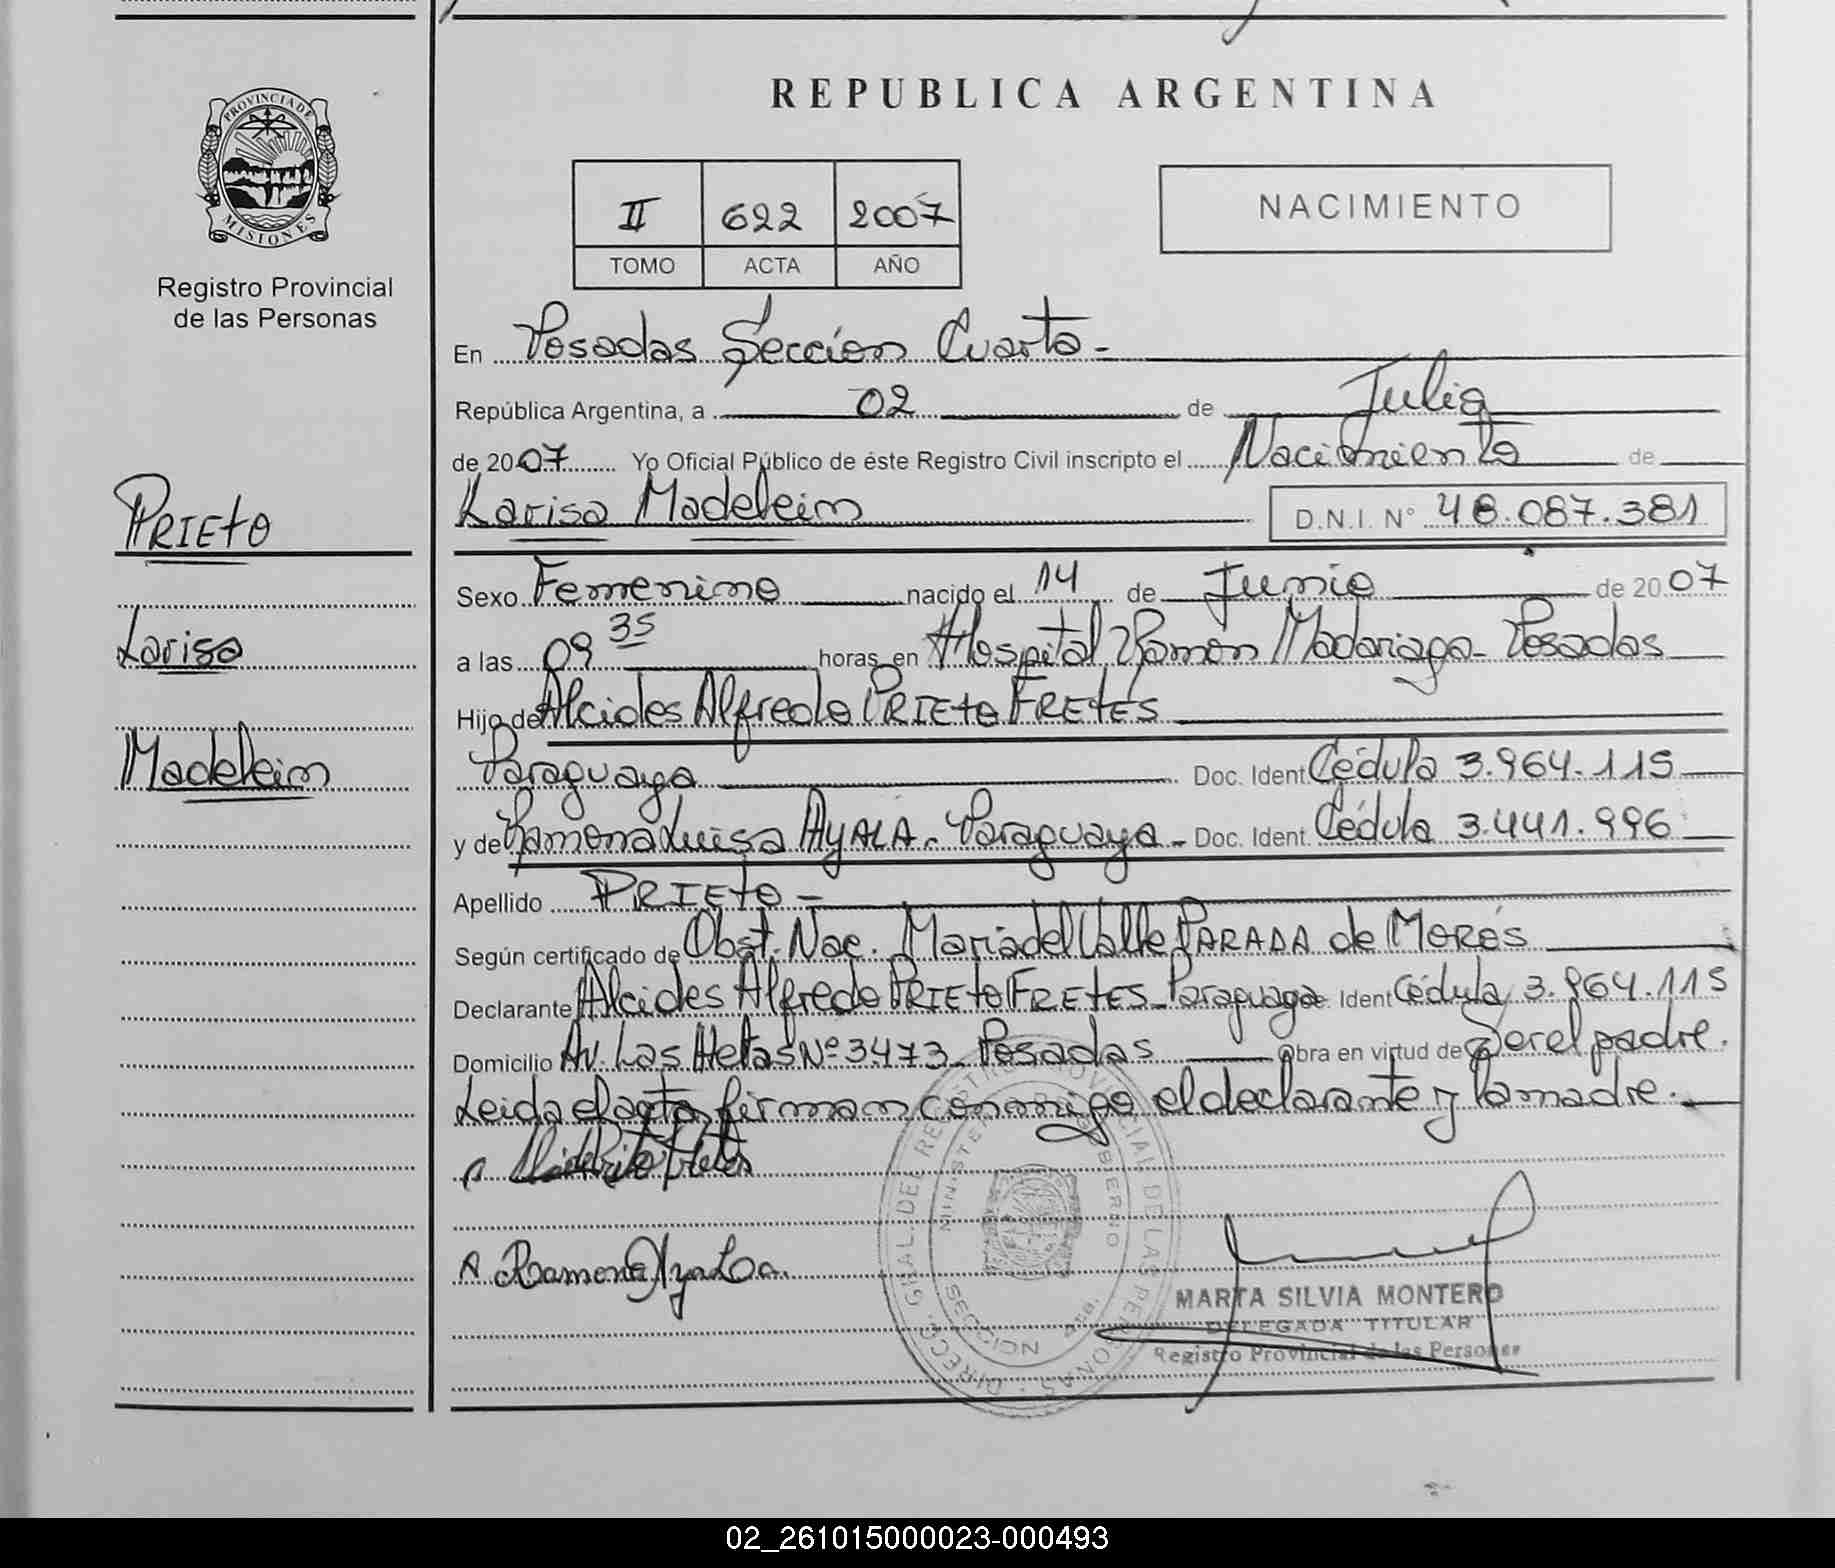 REPUBLICA ARGENTINA
PROVINCIA DE MISIONES
Registro Provincial
de las Personas
II 622 2007
TOMO ACTA AÑO
NACIMIENTO
PRIETO
Larisa
Madelein
En Posadas Sección Cuarta-
República Argentina, a 02 de Julio
de 2007 Yo Oficial Público de éste Registro Civil inscripto el Nacimiento de
Larisa Madelein D.N.I. N° 48.087.381
Sexo Femenino nacido el 14 de Junio de 2007
a las 09 35 horas en Hospital Ramón Madariaga- Posadas
Hijo de Alcides Alfredo PRIETO FRETES
Paraguaya Doc. Ident. Cédula 3.964.115
y de Ramona Luisa AYALA- Paraguaya- Doc. Ident. Cédula 3.441.996
Apellido PRIETO-
Según certificado de Obst. Nac. Maria del Valle PARADA de MORÁS
Declarante Alcides Alfredo PRIETO FRETES- Paraguaya Ident Cédula 3.964.115
Domicilio Av. Las Helas Nº 3473- Posadas Obra en virtud de Ser el padre.
Leida el acta, firman conmigo el declarante y la madre.-
Ramona Ayala
DIRECC. GRAL. DEL REGISTRO PROVINCIAL DE LAS PERSONAS
MINISTERIO GOBIERNO
SECCION 4ta.
MARTA SILVIA MONTERO
DELEGADA TITULAR
Registro Provincial de las Personas
02_261015000023-000493